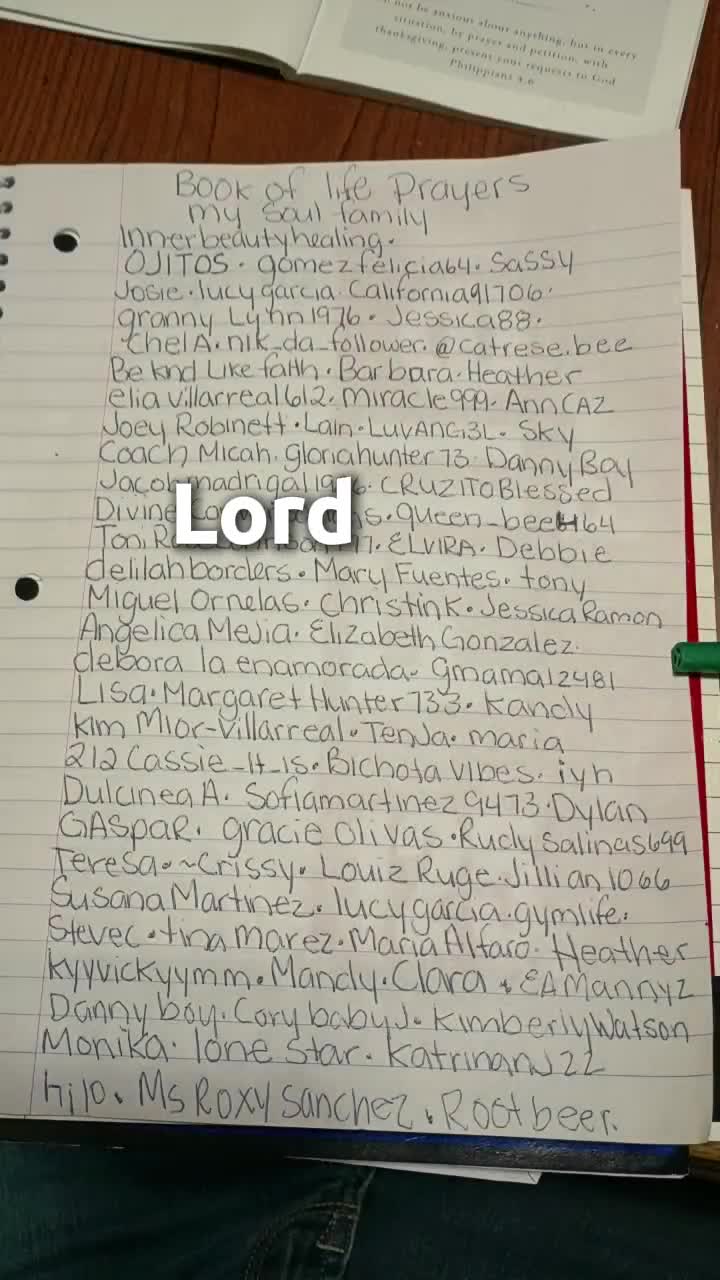 not be anxious about anything, but in every
situation, by prayer and petition, with
thanksgiving, present your requests to God
Philippians 4:6
Book of life Prayers
my Soul family
Innerbeautyhealing.
OJITOS. gomezfelicia64. Sassy
Josie. lucy garcia. California91706.
granny Lynn1976. Jessica88.
thelA. nik_da_follower. @catrese.bee
Be knd Like faith. Barbara. Heather
elia villarreal612. miracle999. AnnCAZ
Joey Robinett. Lain. LuvANG3L. Sky
Coach Micah. gloriahunter73. Danny Boy
Jacobmadrigal19 CRUZITOBlessed
Lord
Divine s. queen_bee464
Toni 7. ELVIRA. Debbie
delilahborders. Mary Fuentes. tony
Miguel Ornelas. ChristinK. Jessica Ramon
Angelica Mejia. Elizabeth Gonzalez.
debora la enamorada. gmama12481
Lisa. Margaret Hunter733. Kandy
Kim Mior-Villarreal. TenJa. maria
212 Cassie_It_is. Bichota Vibes. iyh
Dulcinea A. Sofiamartinez9473. Dylan
GASpaR. gracie Olivas. Rudy Salinas699
Teresa. ~Crissy. Louiz Ruge. Jillian1066
Susana Martinez. lucygarcia. gymlife.
Stevec. tina marez. Maria Alfaro. Heather
kyyvickyymm. Mandy. Clara. EAMannyz
Danny boy. Cory baby J. Kimberly Watson
Monika. lone star. KatrinanJ22
hilo. Ms Roxy Sanchez. Root beer.